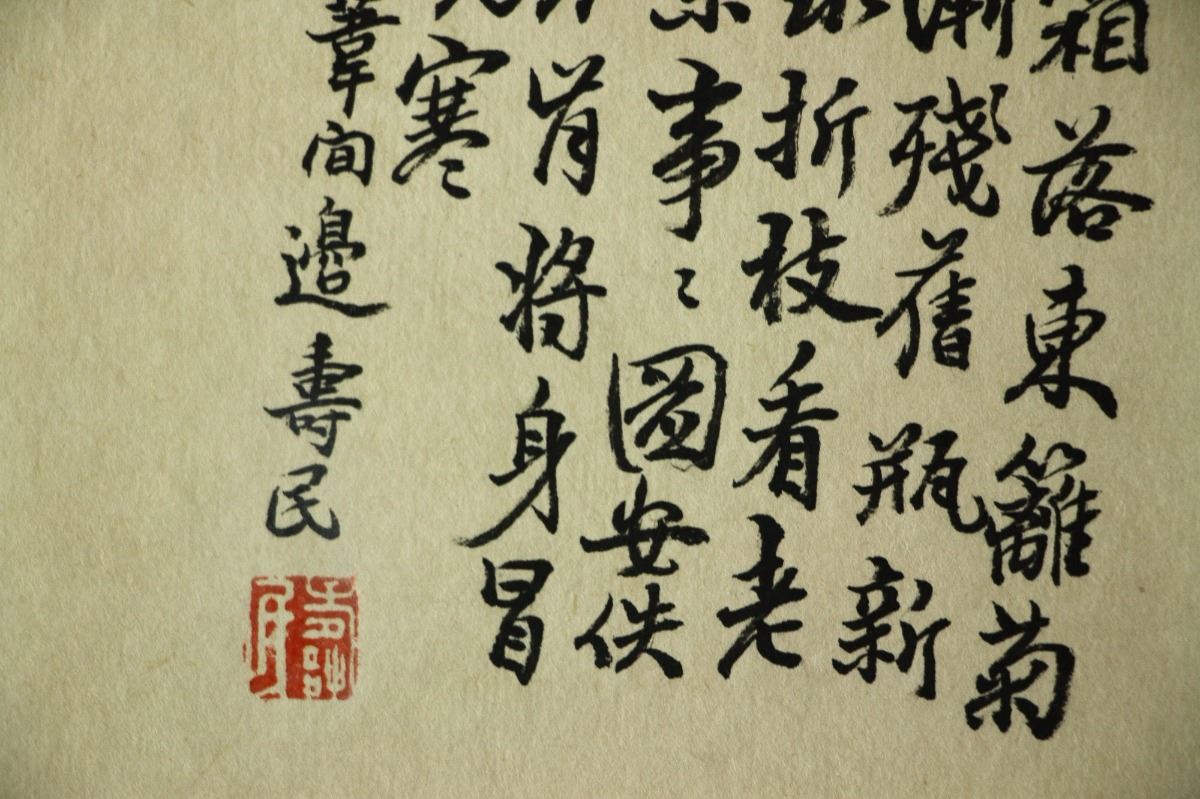 霜落東籬菊
漸殘舊瓶新
折枝看老
事〻圖安佚
肯将身冒
寒
葦間邊壽民
壽民